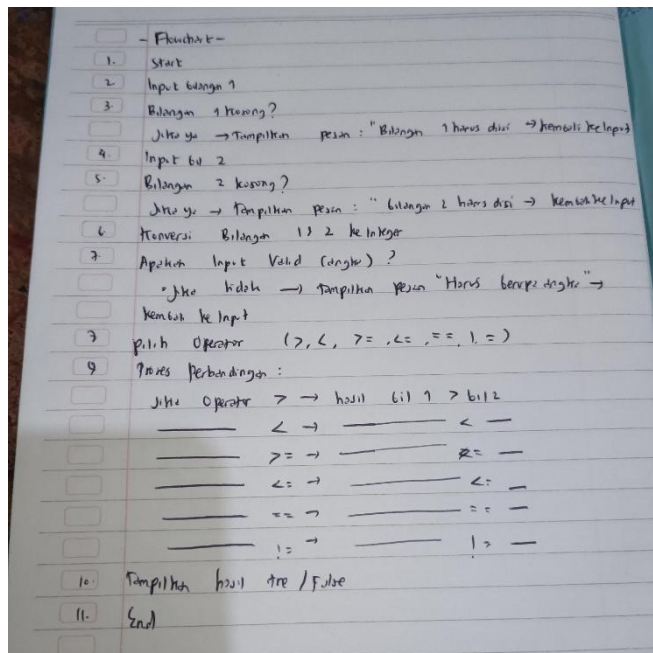 - Flowchart -
1. Start
2. Input bilangan 1
3. Bilangan 1 kosong?
Jika ya → Tampilkan pesan : "Bilangan 1 harus diisi → kembali ke Input
4. Input bil 2
5. Bilangan 2 kosong?
Jika ya → Tampilkan pesan : " bilangan 2 harus diisi → kembali ke Input
6 Konversi Bilangan 1 & 2 ke Integer
7. Apakah Input Valid (angka) ?
• Jika tidak → tampilkan pesan "Harus berupa angka" →
kembali ke Input
7 pilih Operator (>, <, >=, <=, ==, !, =)
9 Proses Perbandingan :
Jika Operator > → hasil bil 1 > bil 2
—— < → —— < —
—— >= → —— >= —
—— <= → —— <= —
—— == → —— == —
—— != → —— != —
10. Tampilkan hasil true / False
11. End